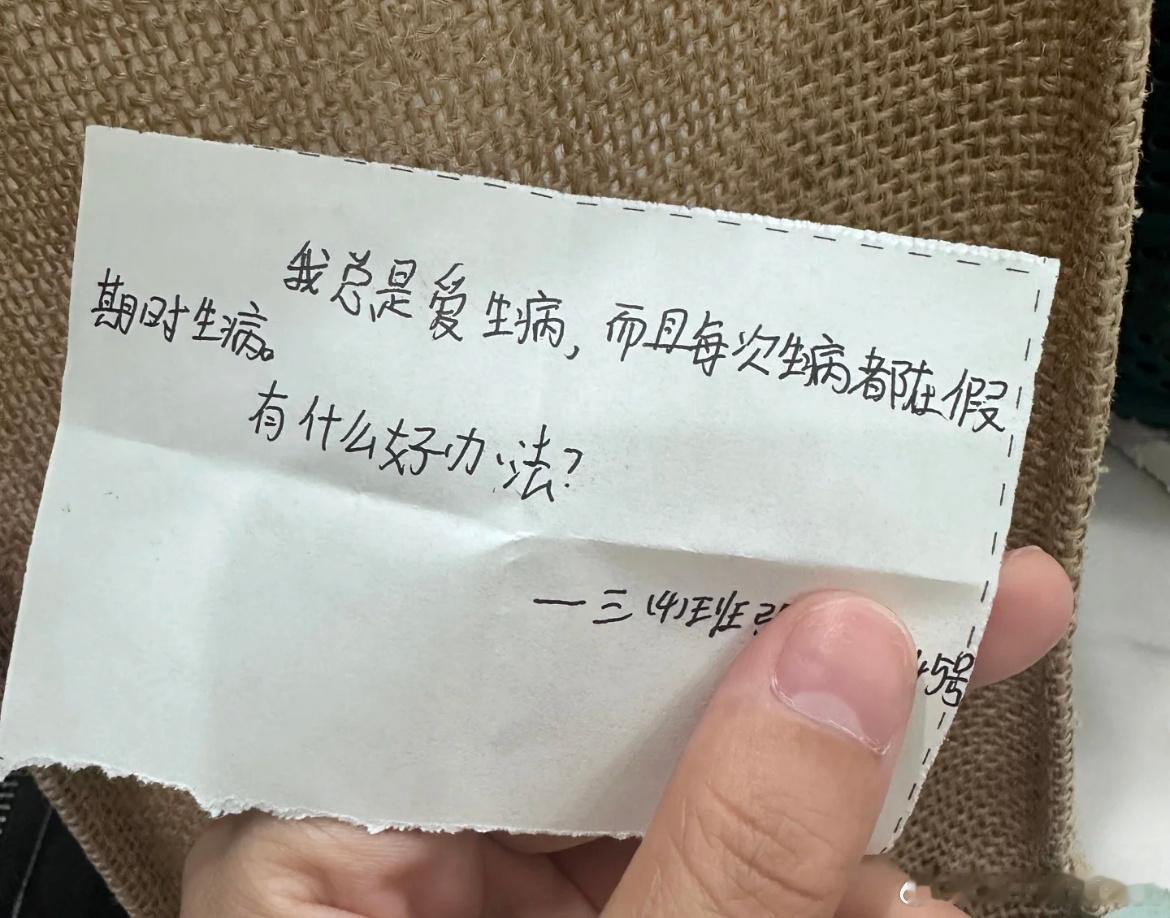 我总是爱生病,而且每次生病都在假
期时生病。
有什么好办法?
—三(4)班
5号